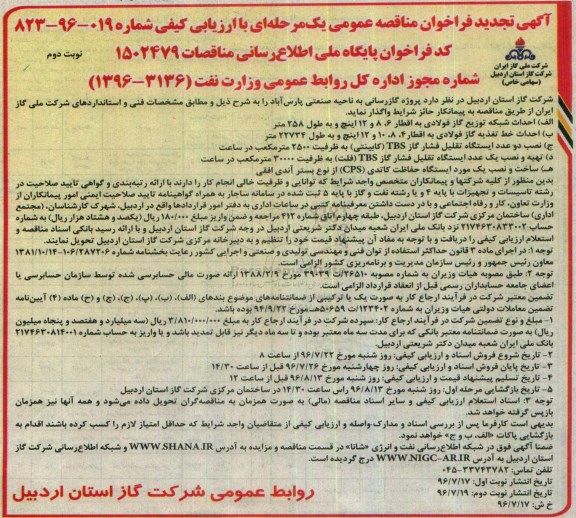 آگهی تجدید فراخوان مناقصه عمومی یک‌مرحله‌ای با ارزیابی کیفی شماره ۰۱۹-۹۶-۸۲۳
کد فراخوان پایگاه ملی اطلاع‌رسانی مناقصات ۱۵۰۲۴۷۹
نوبت دوم
شماره مجوز اداره کل روابط عمومی وزارت نفت (۳۱۳۶-۱۳۹۶)
شرکت ملی گاز ایران
شرکت گاز استان اردبیل
(سهامی خاص)
شرکت گاز استان اردبیل در نظر دارد پروژه گازرسانی به ناحیه صنعتی پارس‌آباد را به شرح ذیل و مطابق مشخصات فنی و استانداردهای شرکت ملی گاز
ایران از طریق مناقصه به پیمانکار حائز شرایط واگذار نماید.
الف) احداث شبکه توزیع گاز فولادی به اقطار ۶، ۸ و ۱۲ اینچ و به طول ۲۵۸ متر
ب) احداث خط تغذیه گاز فولادی به اقطار ۴، ۸، ۱۰ و ۱۲ اینچ و به طول ۲۲۷۳۴ متر
ج) نصب دو عدد ایستگاه تقلیل فشار گاز TBS (کابینتی) به ظرفیت ۲۵۰۰ مترمکعب در ساعت
د) تهیه و نصب یک عدد ایستگاه تقلیل فشار گاز TBS (فلت) به ظرفیت ۳۰۰۰۰ مترمکعب در ساعت
هـ) ساخت و نصب یک مورد ایستگاه حفاظت کاتدی (CPS) از نوع بستر آندی افقی
بدین منظور از کلیه شرکتها و پیمانکاران متخصص واجد شرایط که توانایی و ظرفیت خالی انجام کار را دارند با ارائه رتبه‌بندی و گواهی تایید صلاحیت در
رشته تاسیسات و تجهیزات با پایه ۴ و یا رشته نفت و گاز با پایه ۵ ثبت شده در سامانه ساجار به همراه گواهینامه تایید صلاحیت ایمنی امور پیمانکاران از
وزارت تعاون، کار و رفاه اجتماعی و با در دست داشتن معرفینامه کتبی در ساعات اداری به دفتر امور قراردادها واقع در اردبیل، شهرک کارشناسان، (مجتمع
اداری) ساختمان مرکزی شرکت گاز استان اردبیل، طبقه چهارم اتاق شماره ۴۱۲ مراجعه و ضمن واریز مبلغ ۱۸۰/۰۰۰ ریال (یکصد و هشتاد هزار ریال) به شماره
حساب ۲۱۷۴۶۳۰۸۳۳۰۰۲ نزد بانک ملی ایران شعبه میدان دکتر شریعتی اردبیل در وجه شرکت گاز استان اردبیل و با ارائه رسید بانکی اسناد مناقصه و
استعلام ارزیابی کیفی را دریافت و با توجه به مفاد آن پیشنهاد قیمت خود را تنظیم و به دبیرخانه مرکزی شرکت گاز استان اردبیل تحویل نمایند.
توجه ۱: در اجرای ماده ۳ قانون حداکثر استفاده از توان فنی و مهندسی تولیدی و صنعتی و اجرایی کشور رعایت بخشنامه شماره ۱۴-۱۰۶/۲۸۷۲۰۶-۱۳۸۱/۱۰
معاون رئیس جمهور و رئیس سازمان مدیریت و برنامه‌ریزی کشور الزامی است.
توجه ۲: طبق مصوبه هیات وزیران به شماره مصوبه ۲۶۵۱۰/ت ۳۹۰۳۹ مورخ ۱۳۸۸/۲/۹ ارائه صورت مالی حسابرسی شده توسط سازمان حسابرسی یا
اعضای جامعه حسابداران رسمی قبل از انعقاد قرارداد الزامی است.
تضمین معتبر شرکت در فرآیند ارجاع کار به صورت یک یا ترکیبی از ضمانتنامه‌های موضوع بندهای (الف)، (ب)، (پ)، (ج)، (چ) و (ح) ماده (۴) آیین‌نامه
تضمین معاملات دولتی هیات وزیران به شماره ۱۲۳۴۰۲/ت ۵۰۶۵۹هـ مورخ ۹۴/۹/۲۲ بوده باشد.
۱- مبلغ و نوع تضمین شرکت در فرآیند ارجاع کار: سپرده شرکت در فرآیند ارجاع کار به مبلغ ۳/۸۱۰/۰۰۰/۰۰۰ ریال (سه میلیارد و هفتصد و پنجاه میلیون
ریال) به صورت ضمانتنامه معتبر بانکی که برای مدت سه ماه معتبر بوده و تا سه ماه دیگر نیز قابل تمدید باشد و یا واریز به حساب شماره ۲۱۷۴۶۳۰۸۱۴۰۰۱
بانک ملی ایران شعبه میدان دکتر شریعتی اردبیل.
۲- تاریخ شروع فروش اسناد و ارزیابی کیفی: روز شنبه مورخ ۹۶/۷/۲۲ از ساعت ۸
۳- تاریخ پایان فروش اسناد و ارزیابی کیفی: روز چهارشنبه مورخ ۹۶/۷/۲۶ قبل از ساعت ۱۴/۳۰
۴- تاریخ تسلیم پیشنهاد قیمت و ارزیابی کیفی: روز شنبه مورخ ۹۶/۸/۱۳ قبل از ساعت ۱۲
۵- تاریخ بازگشایی مرحله اول: روز شنبه مورخ ۹۶/۸/۱۳ راس ساعت ۱۴/۳۰ در ساختمان مرکزی شرکت گاز استان اردبیل
توجه ۳: اسناد استعلام ارزیابی کیفی و سایر اسناد مناقصه (مالی) به صورت همزمان به مناقصه‌گران تحویل داده می‌شود و همه آنها نیز همزمان
بازپس گرفته خواهد شد.
بدیهی است کارفرما پس از بررسی اسناد و مدارک واصله و ارزیابی کیفی از متقاضیان واجد شرایط که حداقل امتیاز لازم را کسب کرده باشند اقدام به
بازگشایی پاکات «الف، ب و ج» خواهد نمود.
ضمنا آگهی فوق در شبکه اطلاع‌رسانی نفت و انرژی «شانا» در قسمت مناقصه و مزایده به آدرس WWW.SHANA.IR و شبکه اطلاع‌رسانی شرکت گاز
استان اردبیل به آدرس WWW.NIGC-AR.IR درج گردیده است.
تلفن تماس: ۳۳۷۴۳۷۸۲-۰۴۵
تاریخ انتشار نوبت اول: ۹۶/۷/۱۷
تاریخ انتشار نوبت دوم: ۹۶/۷/۱۹
خ ش: ۹۶/۷/۱۷
روابط عمومی شرکت گاز استان اردبیل